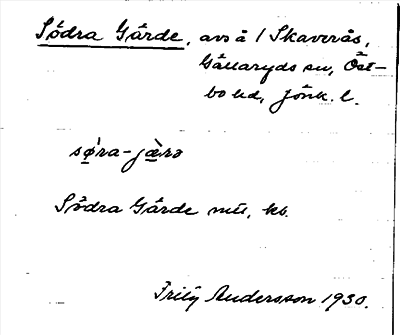 Södra Gärde, avs å / Skaverås,
Gällaryds sn, Öst-
bo hd, Jönk. l.
sø̀ra-jæ̀rə
Södra Gärde mil, ks.
Fritz Andersson 1930.